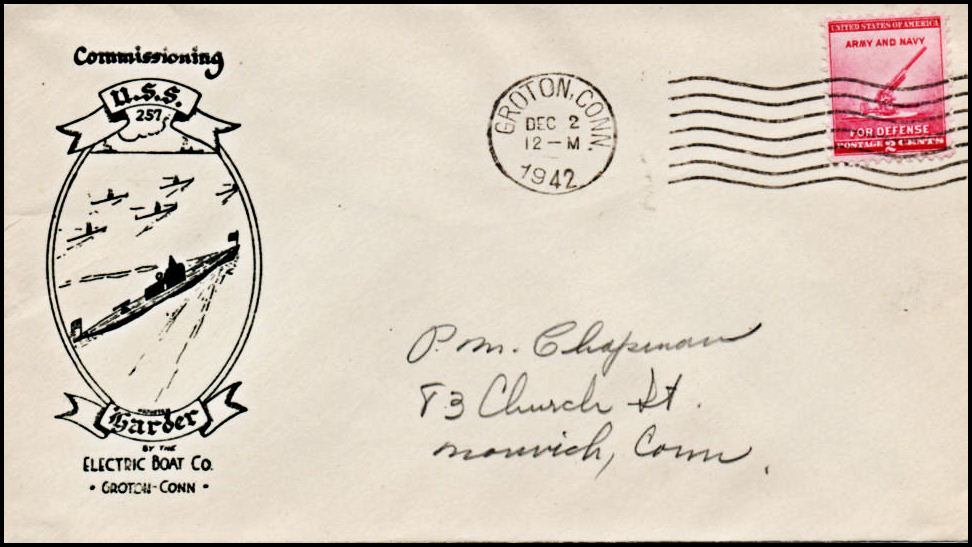 Commissioning
U.S.S.
257
Harder
BY THE
ELECTRIC BOAT CO.
• GROTON-CONN •
GROTON, CONN.
DEC 2
12-M
1942
UNITED STATES OF AMERICA
ARMY AND NAVY
FOR DEFENSE
POSTAGE 2 CENTS
P. M. Chapman
83 Church St.
Norwich, Conn.